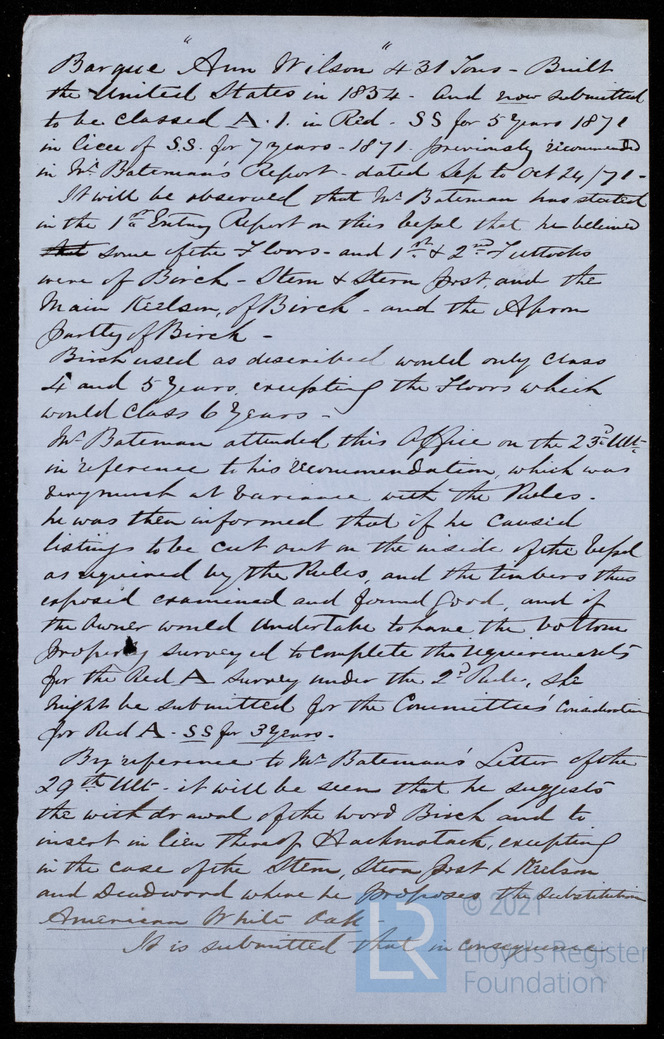 Barque "Ann Wilson" 431 Tons - Built
the United States in 1854 - And now submitted
to be classed A.1. in Red - SS for 5 Years 1871
in lieu of S.S. for 7 years - 1871. previously recommended
in Mr Bateman's Report - dated Sep to Oct 24/71 -
It will be observed that Mr Bateman has stated
in the 1st Entry Report on this Vessel that he believed
that some of the Floors - and 1st & 2nd Futtocks
were of Birch - Stem & Stern post and the
Main Keelson, of Birch - and the Apron
partly of Birch -
Birch used as described would only class
4 and 5 Years, excepting the Floors which
would class 6 Years -
Mr Bateman attended this Office on the 23d Ult
in reference to his recommendation, which was
very much at variance with the Rules -
he was then informed that if he caused
listings to be cut out on the inside of the Vessel
as required by the Rules, and the timbers thus
exposed examined and found Good, and if
the Owner would undertake to have the bottom
properly surveyed to complete the requirements
for the Red A survey under the 2d Rule, she
might be submitted for the Committee's Consideration
for Red A - SS for 3 Years -
By reference to Mr Bateman's Letter of the
29th Ult - it will be seen that he suggests
the withdrawal of the word Birch and to
insert in lieu thereof Hackmatack, excepting
in the case of the Stem, Stern post & Keelson
and Deadwood where he proposes the substitution
American White Oak -
It is submitted that in consequence
© 2021
LR
Lloyd's Register
Foundation